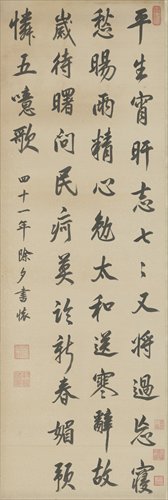 平生宵旰志七〻又將過忘寢
愁暘雨精心勉太和送寒辭故
歲待曙問民疴莫論新春媚預
憐五噫歌 四十一年除夕書懷